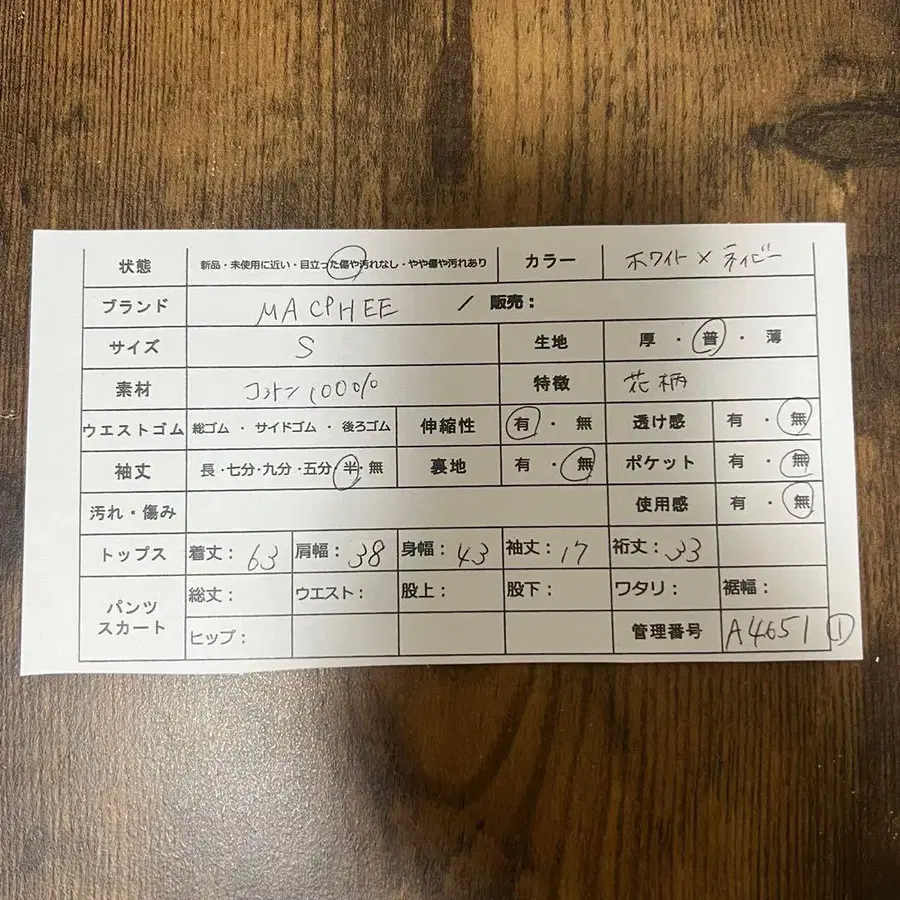 状態 新品・未使用に近い・目立った傷や汚れなし・やや傷や汚れあり カラー ホワイト×ネイビー
ブランド MACPHEE / 販売：
サイズ S 生地 厚・普・薄
素材 コットン100% 特徴 花柄
ウエストゴム 総ゴム・サイドゴム・後ろゴム 伸縮性 有・無 透け感 有・無
袖丈 長・七分・九分・五分・半・無 裏地 有・無 ポケット 有・無
汚れ・傷み 使用感 有・無
トップス 着丈：63 肩幅：38 身幅：43 袖丈：17 裄丈：33
パンツ スカート 総丈： ウエスト： 股上： 股下： ワタリ： 裾幅：
ヒップ： 管理番号 A4651 ①